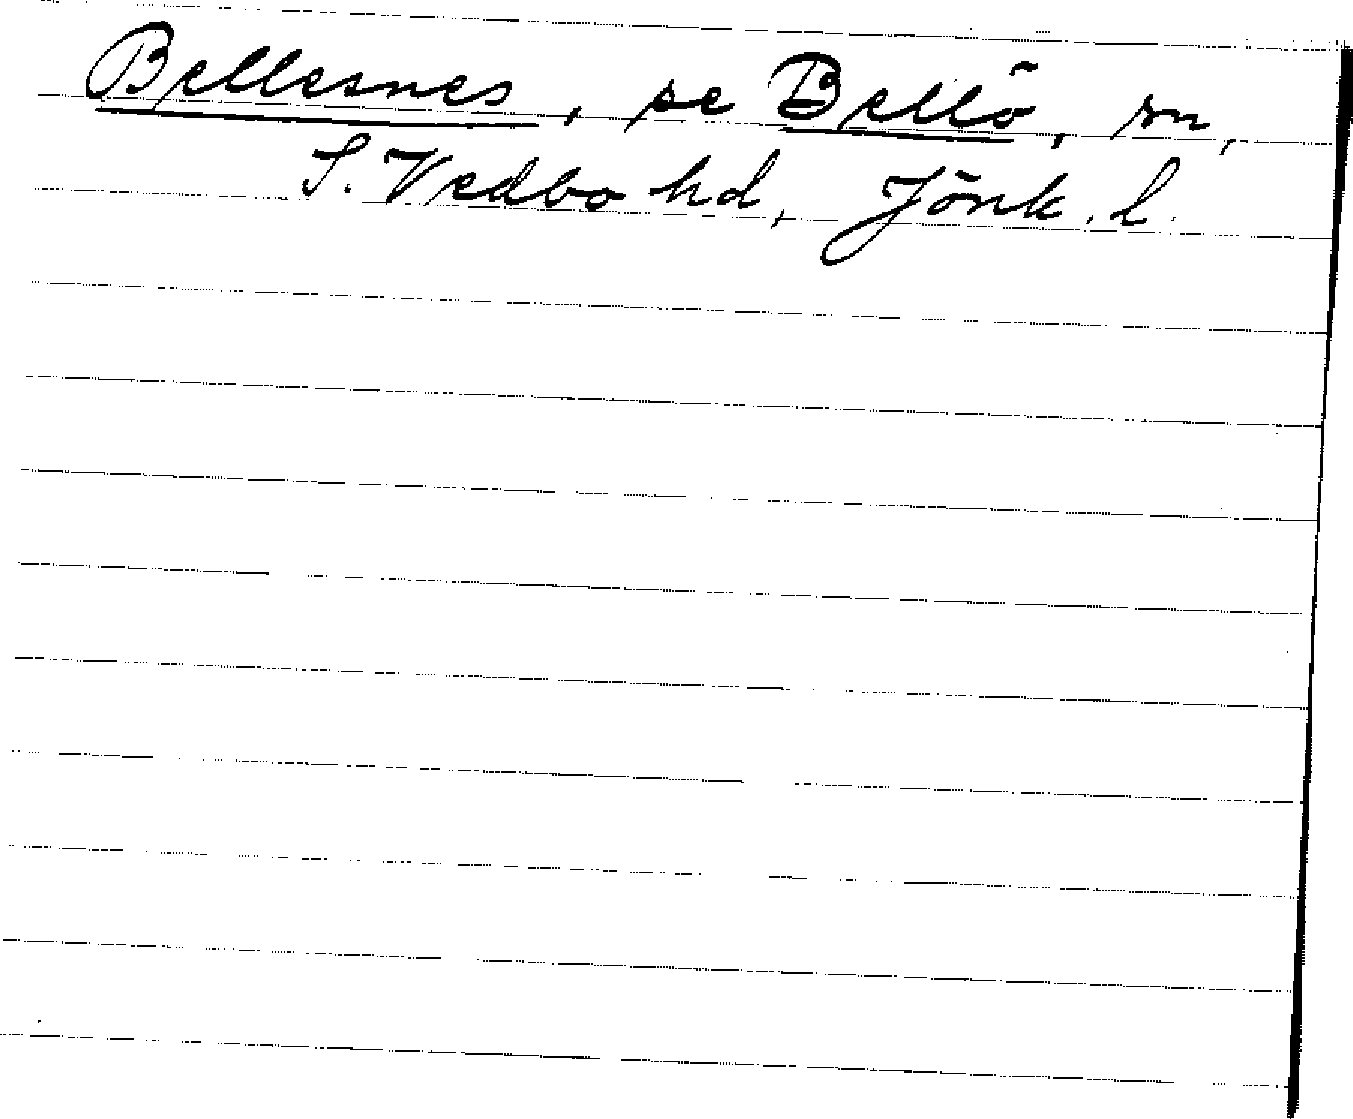 Bellesnes, se Bellö, sn,
S. Vedbo hd, Jönk. l.